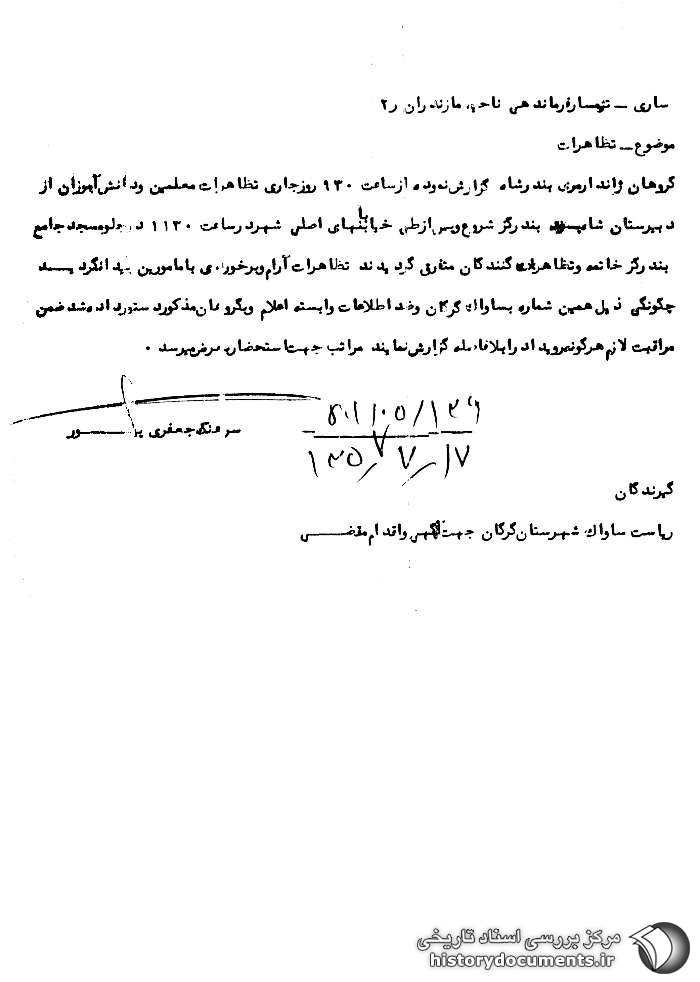 ساری ــ تیمسار فرماندهی ناحیه مازندران ر۲
موضوع ــ تظاهرات
گروهان ژاندارمری بندرشاه گزارش نموده از ساعت ۹۳۰ روز جاری تظاهرات معلمین و دانش آموزان از
دبیرستان بندر گز شروع و پس از طی خیابانهای اصلی شهر در ساعت ۱۱۳۰ در جلو مسجد جامع
بندر گز خاتمه و تظاهر کنندگان متفرق گردیدند تظاهرات آرام و برخوردی با مامورین پیدا نگردیــد
چگونگی ذیل همین شماره بساواک گرگان و ضد اطلاعات وابسته اعلام و بگروهان مذکور دستور داده شد ضمن
مراقبت لازم هرگونه رویداد را بلافاصله گزارش نمایند مراتب جهت استحضار بعرض میرسد ۰
سرهنگ جعفری پــور
۱۳۵۷/۷/۱۷
گیرندگان
ریاست ساواک شهرستان گرگان جهت آگهی و اقدام مقتضــی
مرکز بررسی اسناد تاریخی
historydocuments.ir